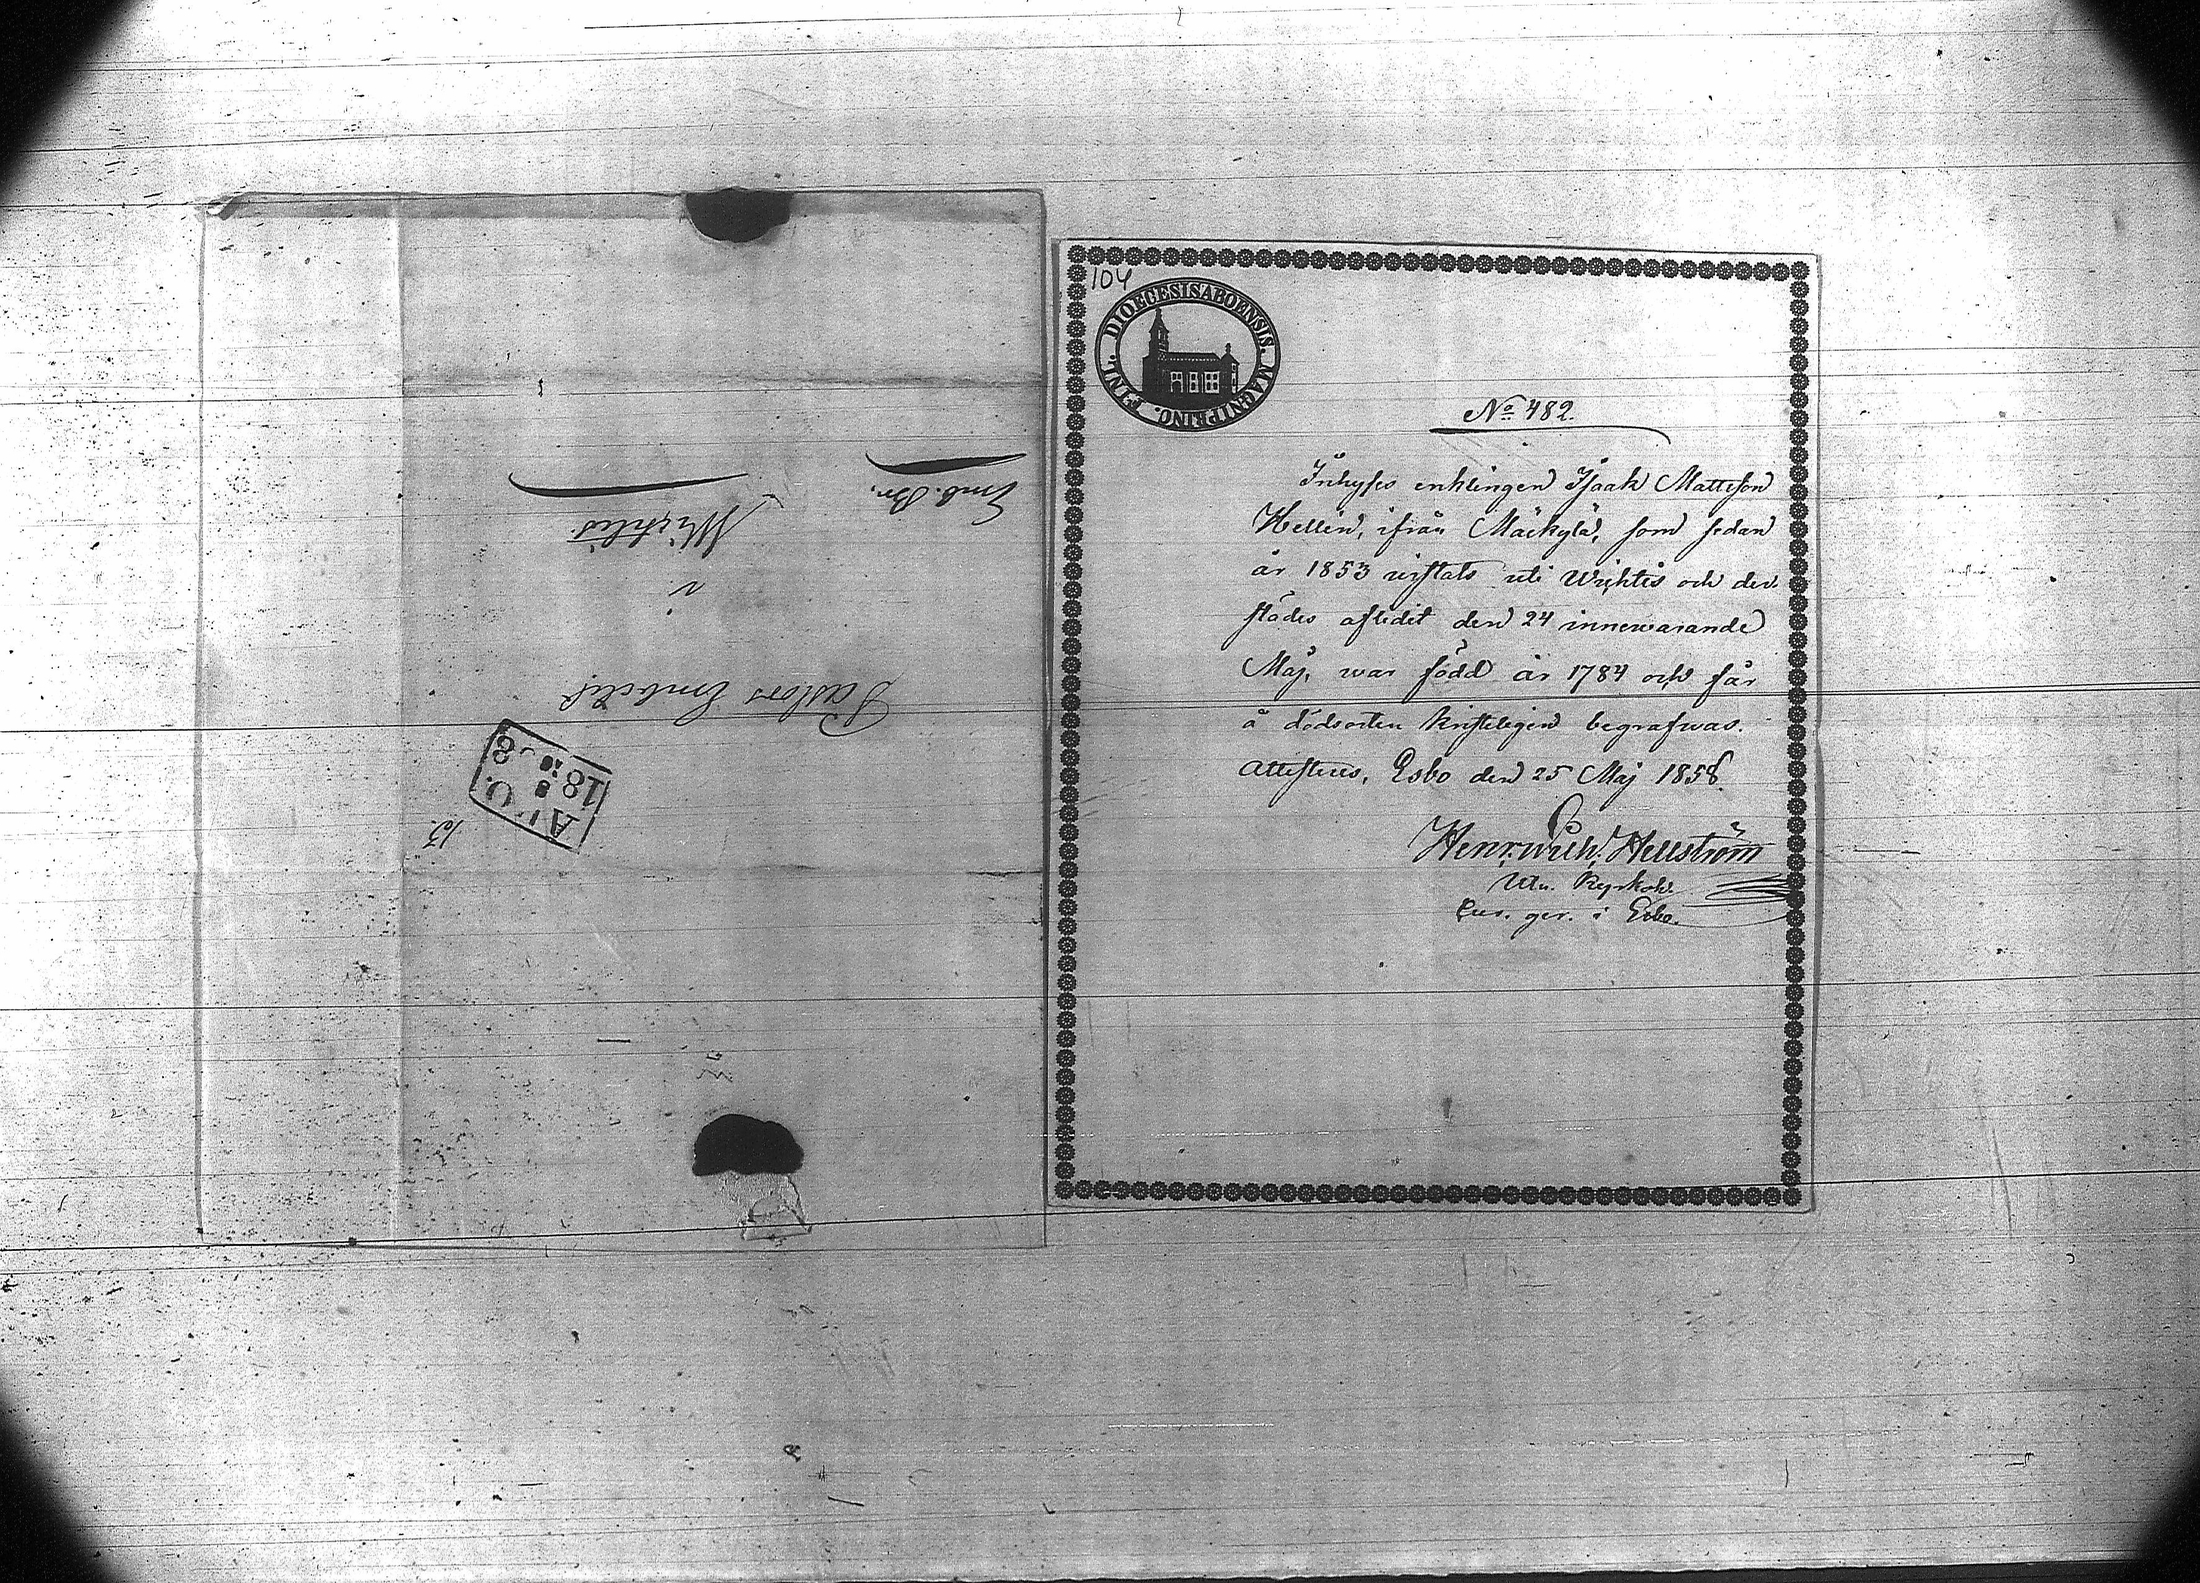 Emb. Br.
Pastors Embetet
i
Wichtis
13.
ABO.
1858
104
DIOECESIS ABOENSIS. MAGNI PRINC. FINL.
No 482.
Inhyses enklingen Isaak Mattsson
Hellen, ifrån Mäkkylä, som sedan
år 1853 vistats uti Wichtis och der
städes aflidit den 24 innewarande
Maj, war född år 1784 och får
å dödsorten kristeligen begrafwas.
Attesteras, Esbo den 25 Maj 1858.
Henr. Wilh. Hellström
Utn. Kyrkoh.
Cur. ger. i Esbo.